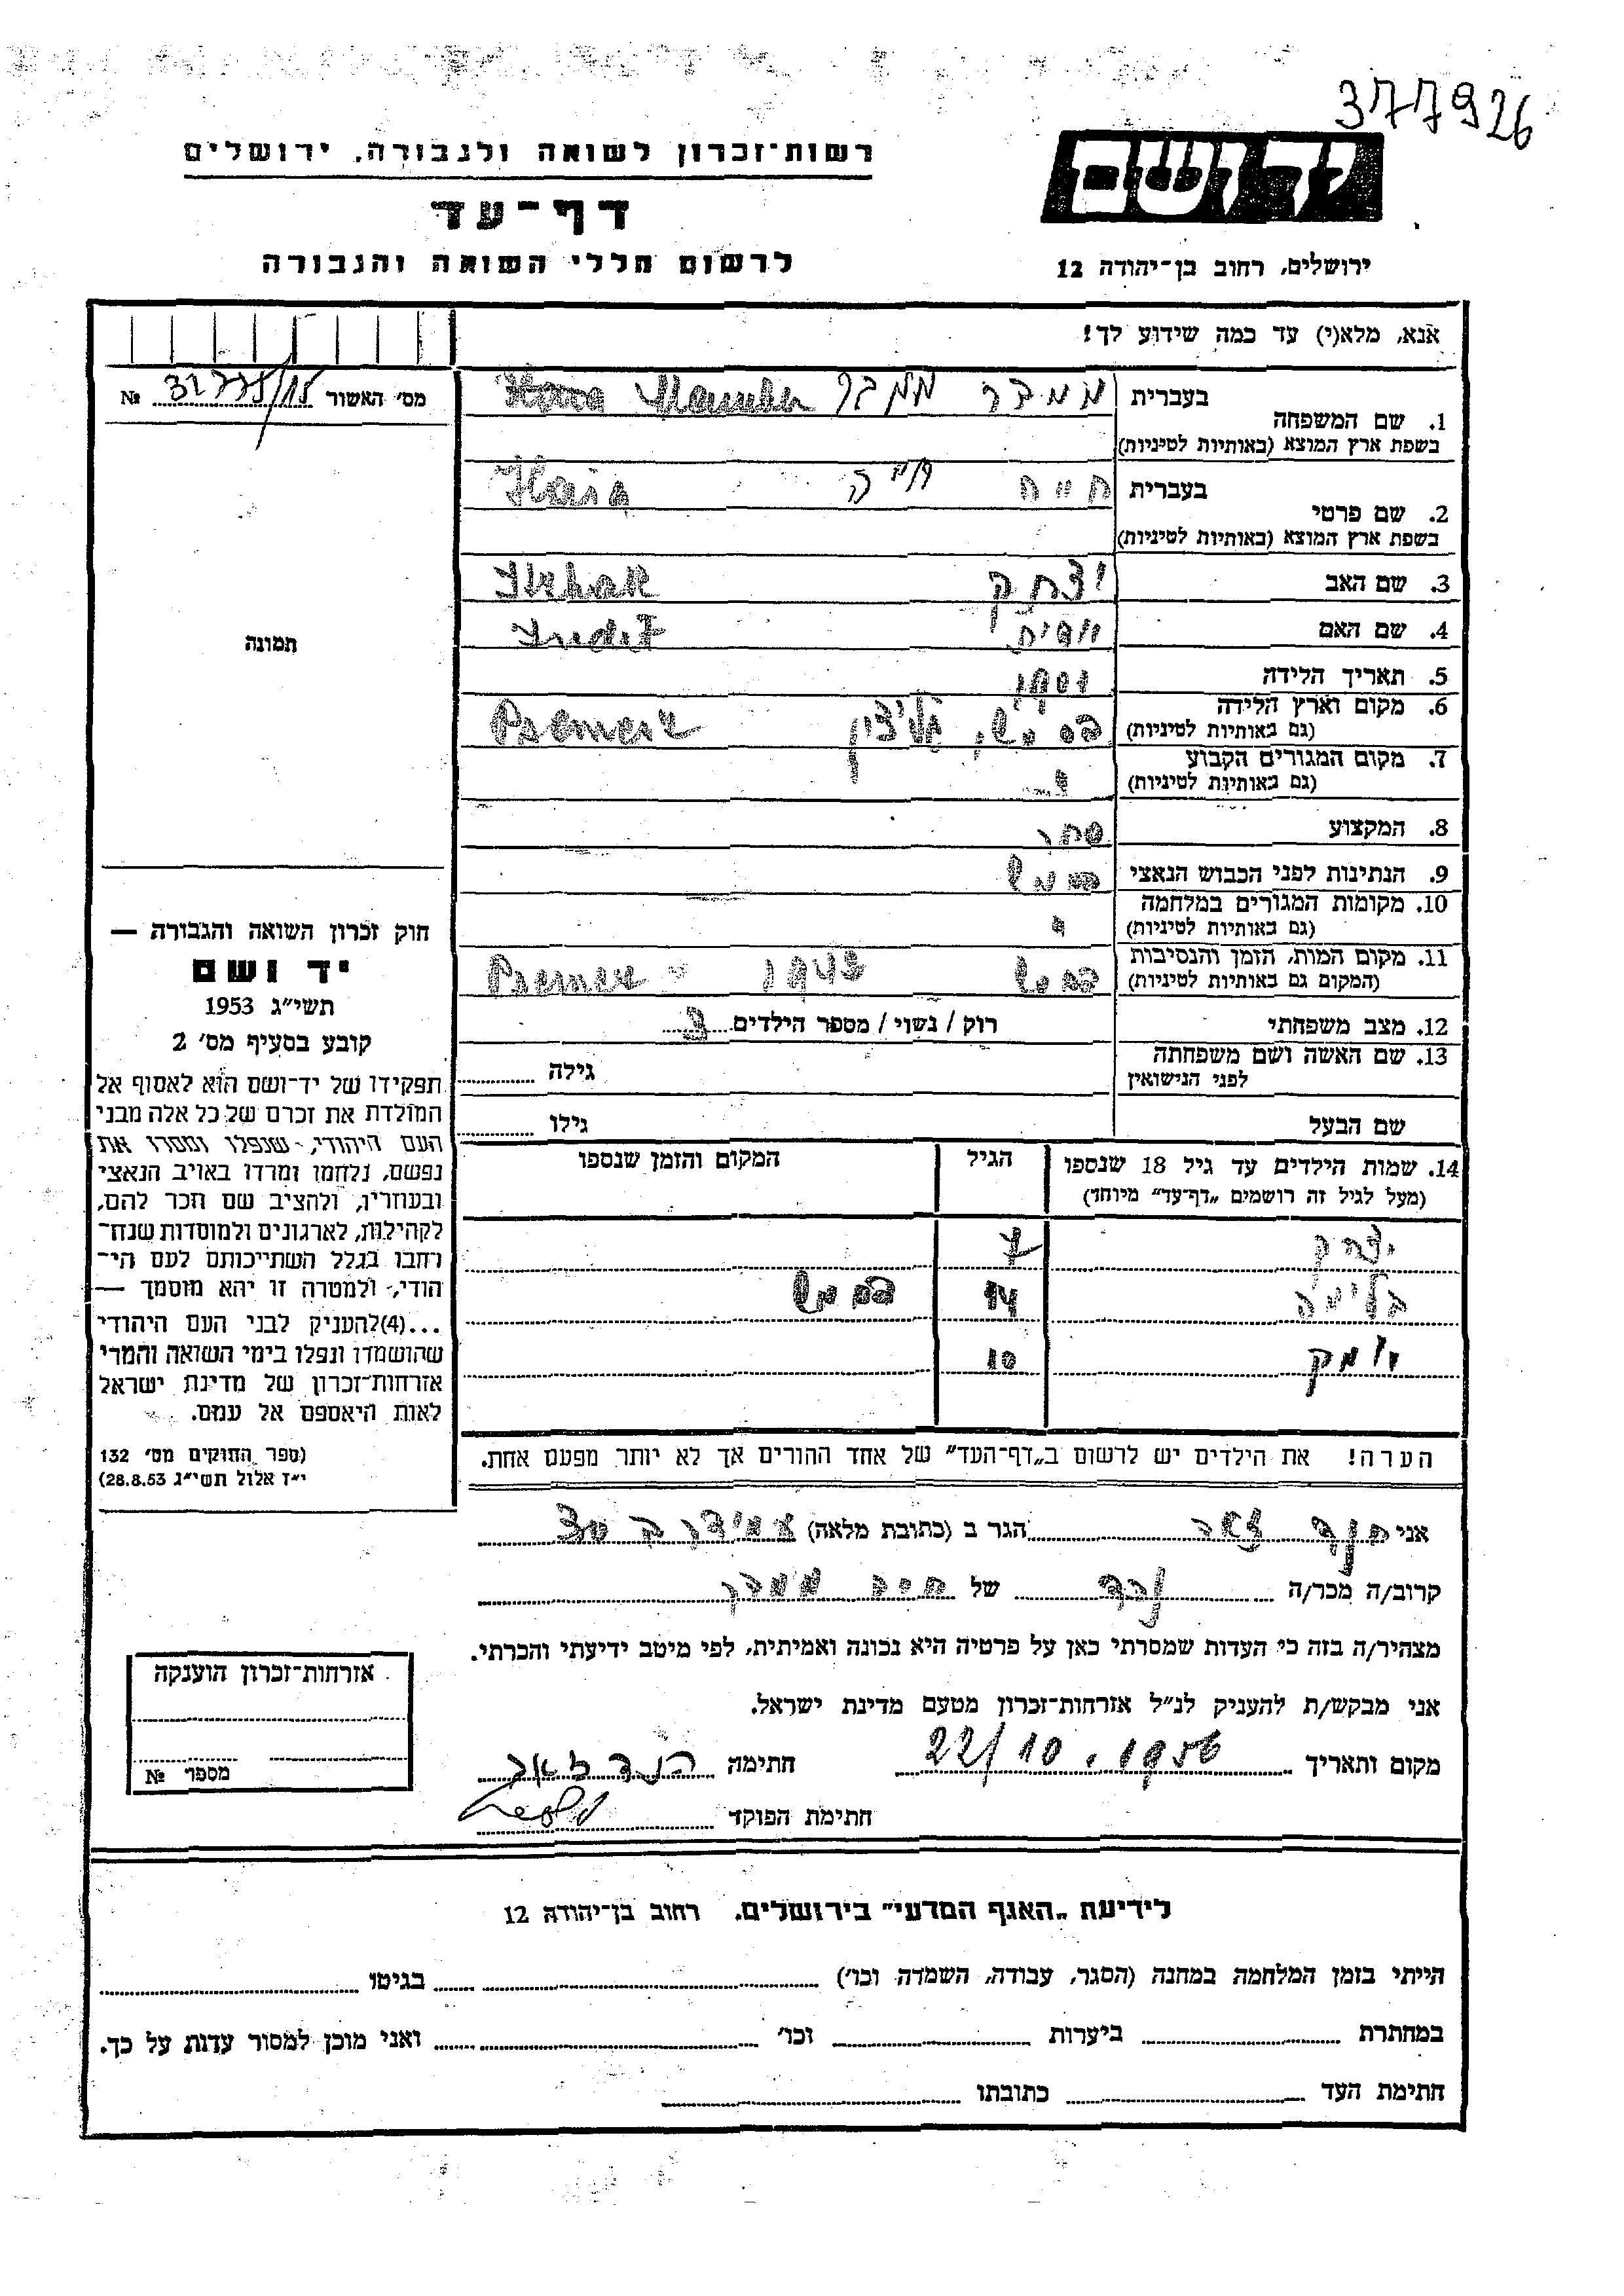 377926
רשות־זכרון לשואה ולגבורה, ירושלים
דף־עד
לרשום חללי השואה והגבורה
יד ושם
ירושלים, רחוב בן־יהודה 12
אנא, מלא(י) עד כמה שידוע לך!
מס' האשור № 32775/15
1. שם המשפחה
בעברית ממבר ממבר
בשפת ארץ המוצא (באותיות לטיניות)
2. שם פרטי
בעברית חיה חיה Haia
בשפת ארץ המוצא (באותיות לטיניות)
3. שם האב יצחק Itzhak
4. שם האם
5. תאריך הלידה
6. מקום וארץ הלידה
(גם באותיות לטיניות)
7. מקום המגורים הקבוע
(גם באותיות לטיניות)
8. המקצוע סחר
9. הנתינות לפני הכבוש הנאצי
10. מקומות המגורים במלחמה
(גם באותיות לטיניות)
11. מקום המות, הזמן והנסיבות
(המקום גם באותיות לטיניות)
12. מצב משפחתי רוק / נשוי / מספר הילדים 3
13. שם האשה ושם משפחתה
לפני הנישואין
גילה
שם הבעל גילו
14. שמות הילדים עד גיל 18 שנספו
(מעל לגיל זה רושמים „דף־עד” מיוחד)
הגיל
המקום והזמן שנספו
יצחק 7
בלימה 14
10
הערה! את הילדים יש לרשום ב„דף־העד” של אחד ההורים אך לא יותר מפעם אחת.
תמונה
חוק זכרון השואה והגבורה —
יד ושם
תשי״ג 1953
קובע בסעיף מס' 2
תפקידו של יד־ושם הוא לאסוף אל
המולדת את זכרם של כל אלה מבני
העם היהודי, שנפלו ומסרו את
נפשם, נלחמו ומרדו באויב הנאצי
ובעוזריו, ולהציב שם וזכר להם,
לקהילות, לארגונים ולמוסדות שנח־
רבו בגלל השתייכותם לעם הי־
הודי, ולמטרה זו יהא מוסמך —
...(4)להעניק לבני העם היהודי
שהושמדו ונפלו בימי השואה והמרי
אזרחות־זכרון של מדינת ישראל
לאות היאספם אל עמם.
(ספר החוקים מס' 132
י״ז אלול תשי״ג 28.8.53)
אני הגר ב (כתובת מלאה)
קרוב/ה מכר/ה נכד של חיה ממבר
מצהיר/ה בזה כי העדות שמסרתי כאן על פרטיה היא נכונה ואמיתית, לפי מיטב ידיעתי והכרתי.
אני מבקש/ת להעניק לנ״ל אזרחות־זכרון מטעם מדינת ישראל.
מקום ותאריך 22/10.1956 חתימה
חתימת הפוקד
אזרחות־זכרון הוענקה
מספר №
לידיעת „האגף המדעי” בירושלים, רחוב בן־יהודה 12
הייתי בזמן המלחמה במחנה (הסגר, עבודה, השמדה וכו') בגיטו
במחתרת ביערות וכו' ואני מוכן למסור עדות על כך.
חתימת העד כתובתו